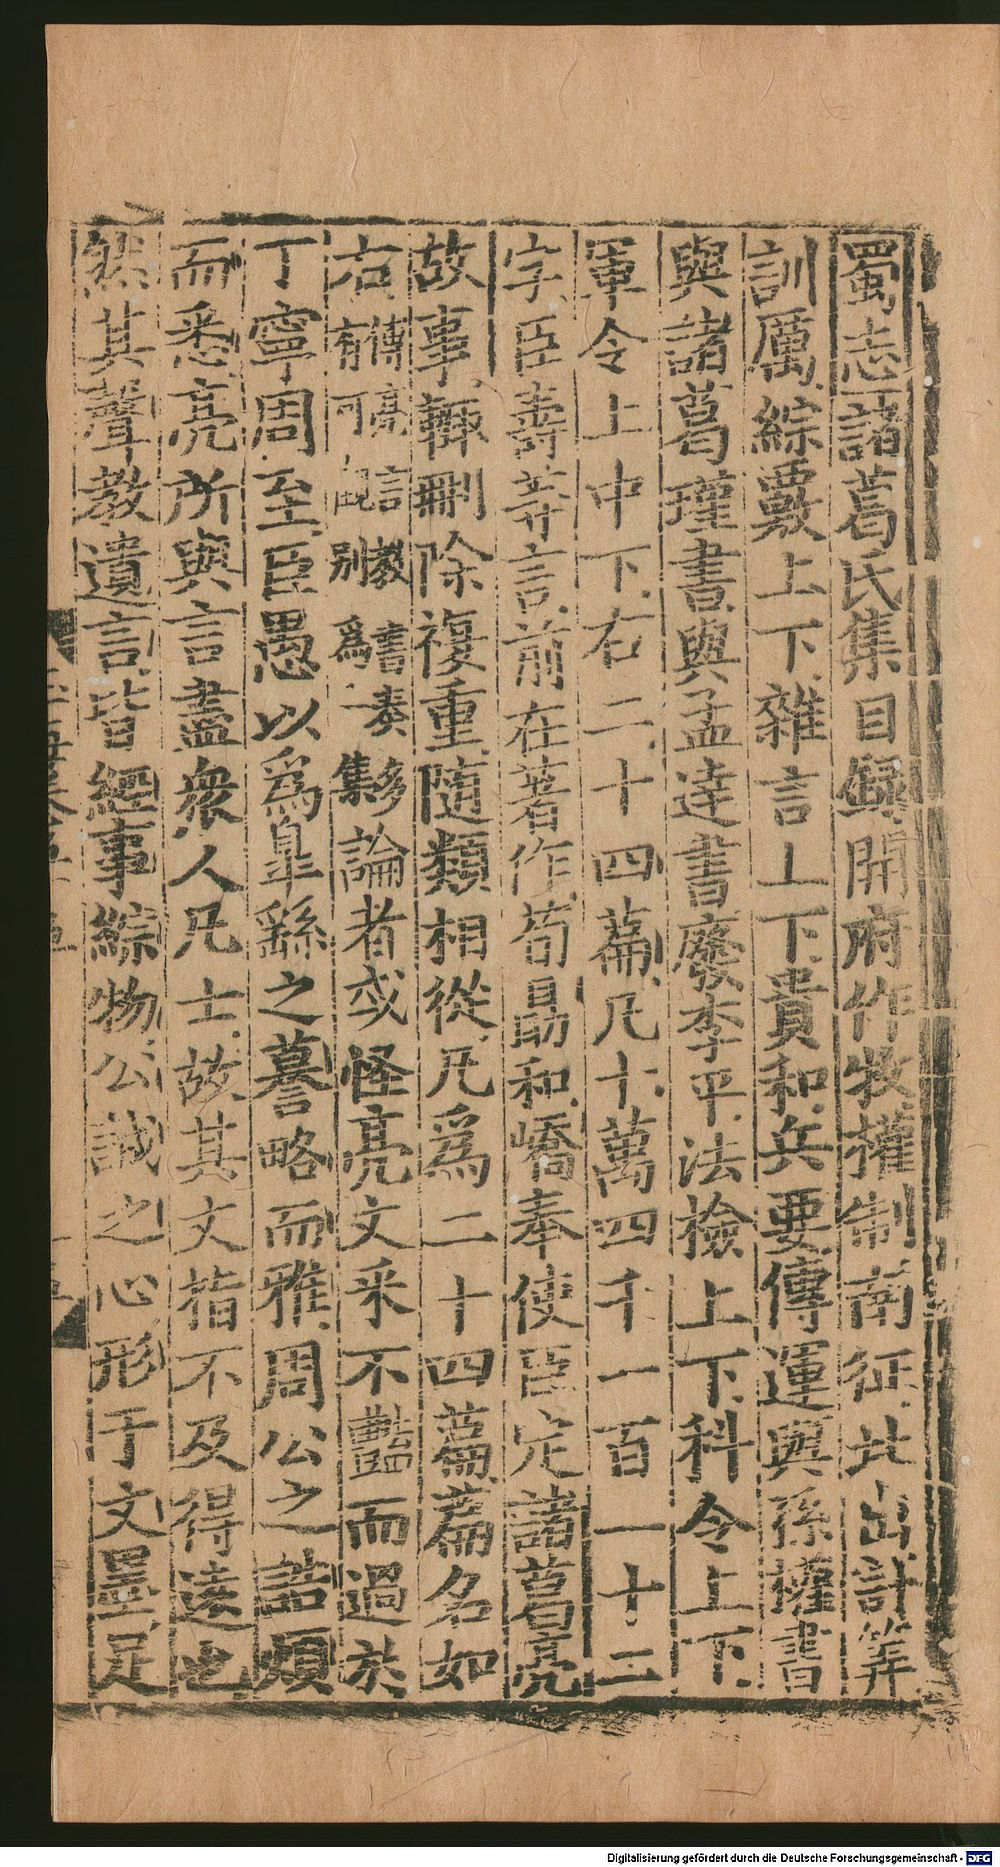 蜀志諸葛氏集目錄開府作牧權制南征北出計筭
訓厲綜覈上下雜言上下貴和兵要傳運與孫權書
與諸葛瑾書與孟達書廢李平法檢上下科令上下
軍令上中下右二十四篇凡十萬四千一百一十二
字臣壽等言前在著作荀勗和嶠奉使臣定諸葛亮
故事輙刪除複重隨類相從凡爲二十四篇篇名如
右傳亮言教書奏多有可此別爲一集論者或怪亮文釆不豔而過於
丁寧周至臣愚以爲臯繇之謩略而雅周公之誥煩
而悉亮所與言盡衆人凡士故其文指不及得逺也
然其聲教遺言皆經事綜物公誠之心形于文墨足
Digitalisierung gefördert durch die Deutsche Forschungsgemeinschaft - DFG